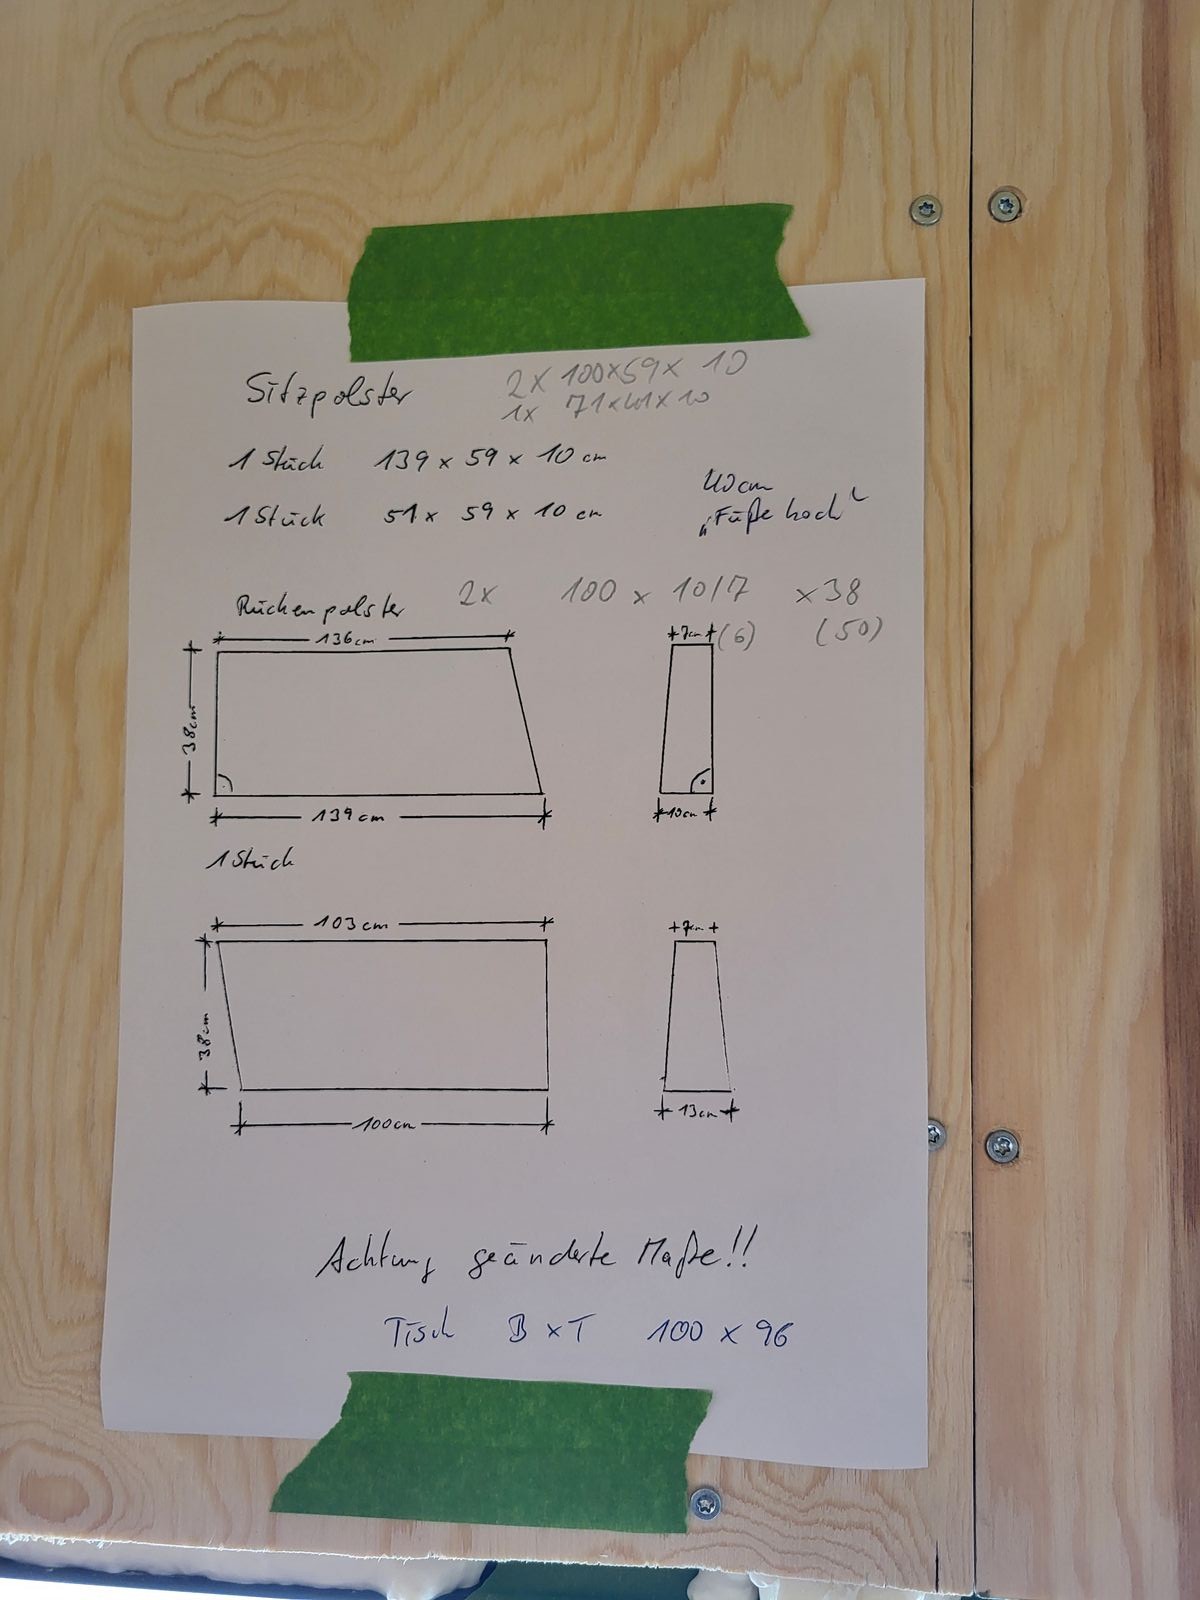 Sitzpolster 2x 100x59x 10
1x 71x41x10
1 Stück 139 x 59 x 10 cm
1 Stück 51 x 59 x 10 cm
40cm
„Füße hoch“
Rückenpolster 2x 100 x 10/7 x38
(6) (50)
136cm 7cm
38cm
139cm 10cm
1 Stück
103cm 7cm
38cm
100cm 13cm
Achtung geänderte Maße!!
Tisch B x T 100 x 96